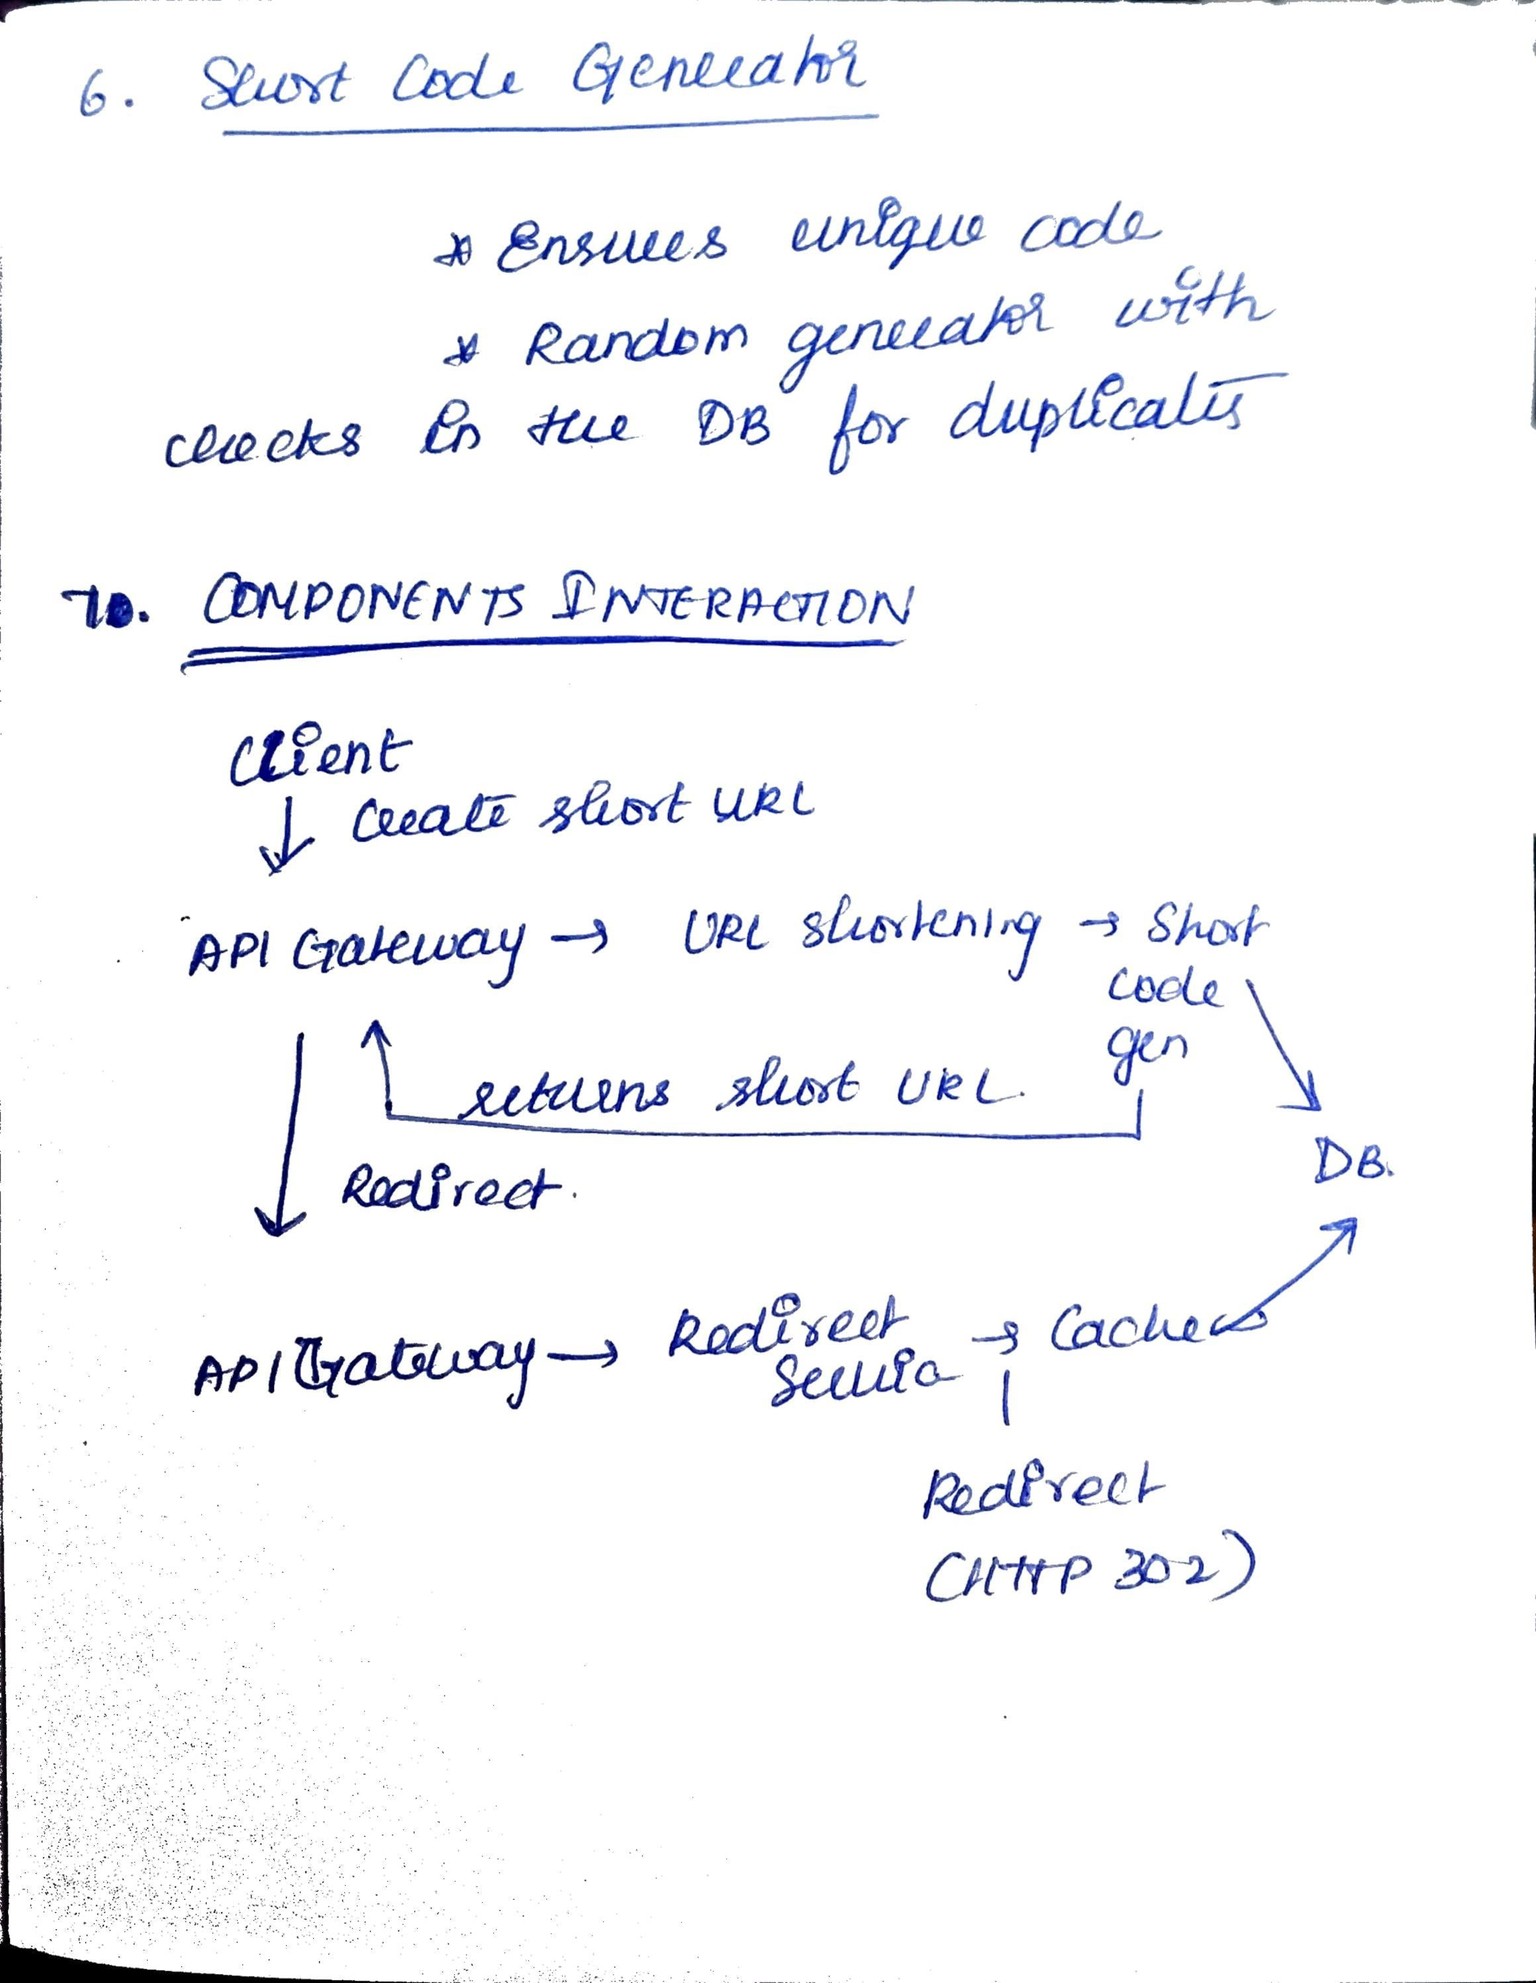 6. Short Code Generator
* Ensures unique code
* Random generator with
checks in the DB for duplicates
10. COMPONENTS INTERACTION
Client
↓ Create short URL
API Gateway → URL shortening → Short
code
gen
returns short URL.
DB.
Redirect.
API Gateway → Redirect → Cache
Service
Redirect
(HTTP 302)